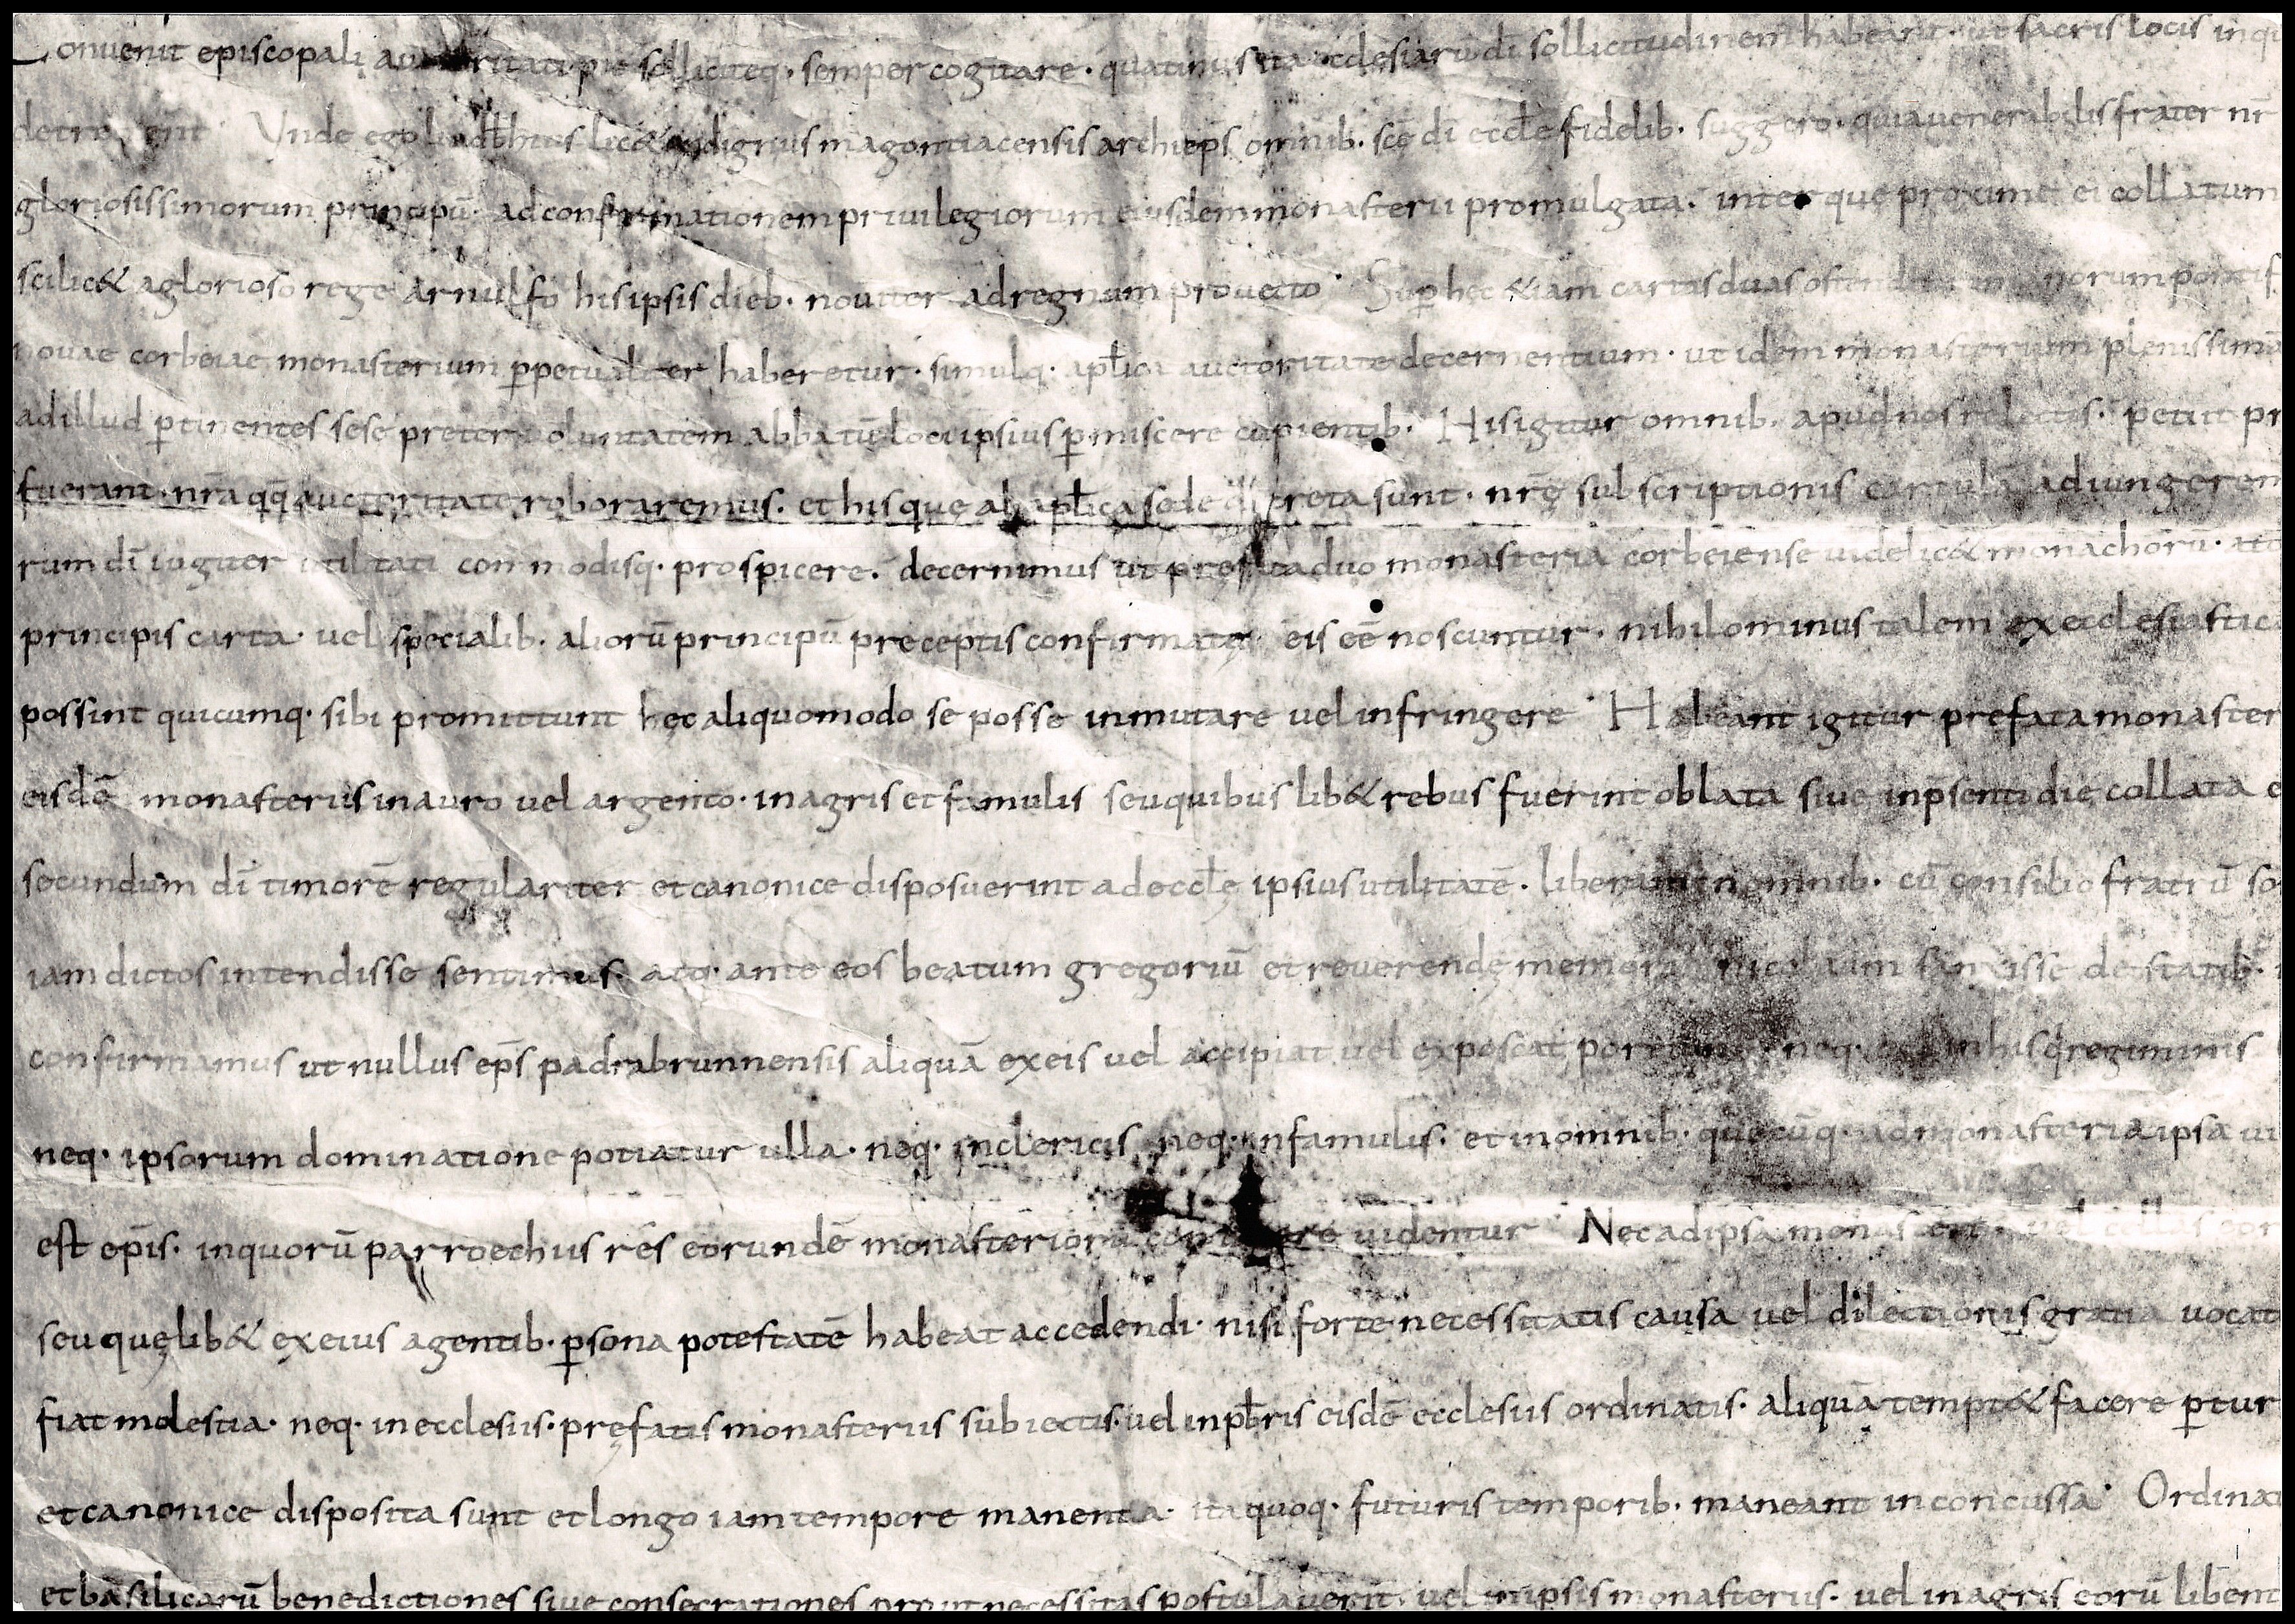 Convenit episcopali auctoritati pie solliciteq· semper cogitare · quatinus ita ęcclesiarū dī sollicitudinem habeant · ut sacris locis in qui
Unde ego liudbhtus lic& indignus magontiacensis archiep̄s omnib· scę dī eccłe fidelib· suggero · quia venerabilis frater nr̄
gloriosissimorum principū· ad confirmationem privilegiorum eiusdem monasterii promulgata · inter que proxime ei collatum
scilic& a glorioso rege arnulfo his ipsis dieb· noviter ad regnum provecto · Sup̱ hęc &iam cartas duas romanorum pontif
novae corbeiae monasterium p̱petualiter haberetur · simulq· apłica auctoritate decernentium · ut idem monasterium plenissimā
ad illud p̱tinentes sese preter voluntatem abbatū loci ipsius p̱miscere cupientib· His igitur omnib· apud nos relectis · petiit pr
fuerant · nr̄a qq̄ auctoritate roboraremus · et his quę ab apłica sede decreta sunt · nr̄ę subscriptionis cartulā adiungerem
rum dī iugiter utilitati commodisq· prospicere · decernimus ut prefata duo monasteria corbeiense videlic& monachorū·
principis carta · vel specialib· aliorū principū preceptis confirmatę eis eē noscuntur · nihilominus talem ex ecclesiastica
possint quicumq· sibi promittunt hęc aliquomodo se posse inmutare vel infringere · Habeant igitur prefata monaster
eisdē monasteriis in auro vel argento · in agris et famulis seu quibus lib& rebus fuerint oblata sive in p̄senti die collata e
secundum dī timorē regulariter et canonice disposuerint ad eccłę ipsius utilitatē · liberam in omnib· cū consilio fratrū so
iam dictos intendisse sentimus · atq· ante eos beatum gregoriū et reverendę memorię nicolaum sanxisse de statib·
confirmamus ut nullus ep̄s padrabrunnensis aliquā ex eis vel accipiat vel exposcat portionē · neq· in his q̄ regiminis
neq· ipsorum dominatione potiatur ulla · neq· in clericis neq· in famulis · et in omnib· quęcūq· ad monasteria ipsa vi
est ep̄is · in quorū parroechiis rēs eorundē monasteriorū coniacere videntur · Nec ad ipsa monasteria vel cellas eor
seu quęlib& ex eius agentib· p̱sona potestatē habeat accedendi · nisi forte necessitatis causa vel dilectionis gratia vocat
fiat molestia · neq· in ecclesiis · pręfatis monasteriis subiectis · vel in pb̄ris eisdē ecclesiis ordinatis · aliquā tempt& facere p̱tur
et canonice disposita sunt et longo iam tempore manentia · ita quoq· futuris temporib· maneant inconcussa · Ordinat
et basilicarū benedictiones sive consecrationes prout necessitas postulaverit · vel in ipsis monasteriis · vel in agris eorū libent